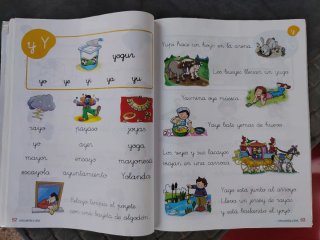 y Y
yogur
yo ye yi ya yu
rayo payaso joyas
yo ayer yoga
mayor ensayo mayonesa
escayola ayuntamiento Yolanda
Pelayo limpia el poyete
con una bayeta de algodón.
52
y
Yupi hace un hoyo en la arena.
Los bueyes llevan un yugo.
Yasmina oye música.
Yago bate yemas de huevo.
Los reyes y sus lacayos
viajan en una carroza.
Yago está junto al arroyo.
Lleva un jersey de rayas
y está bailando el yoyó.
53